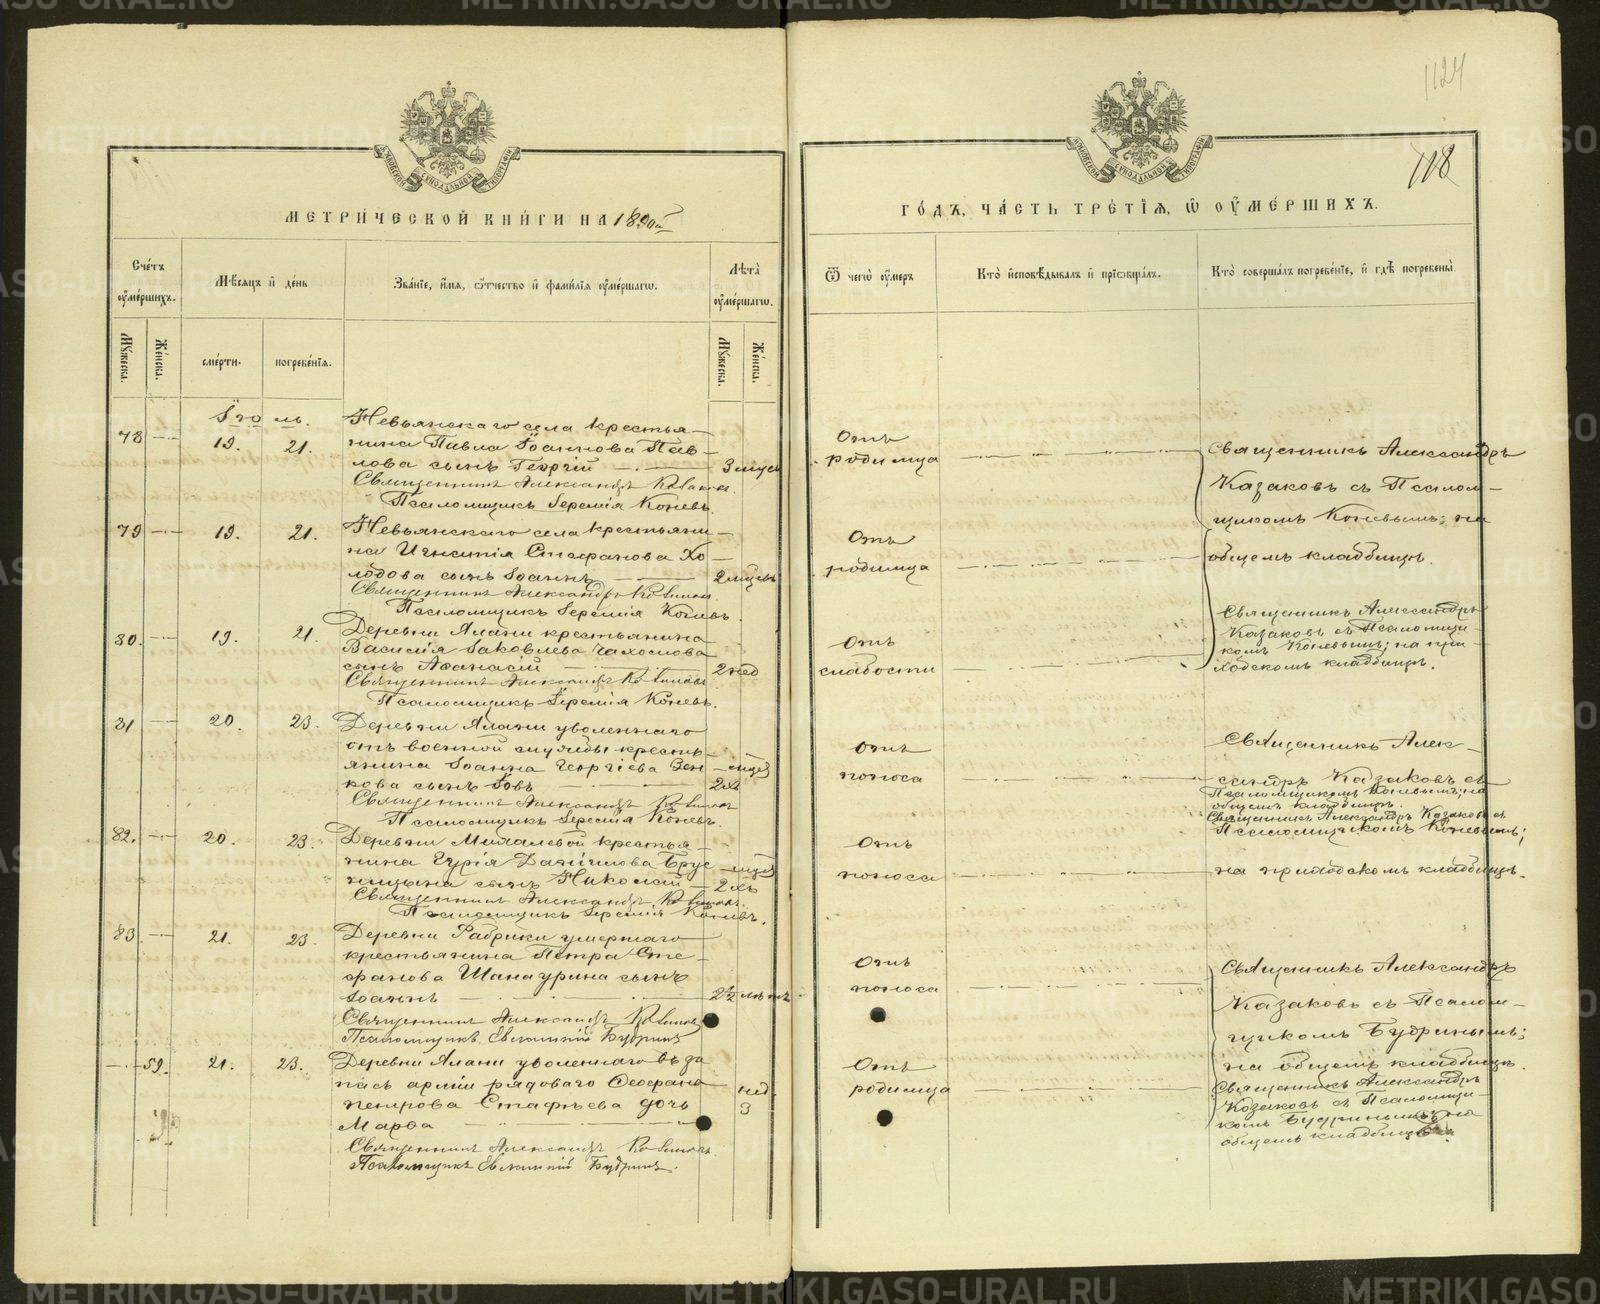 МЕТРИ́ЧЕСКОЙ КНИ́ГИ НА 1890й
Сче́тъ оу҆ме́ршихъ.
Мѣсѧцъ и҆ де́нь
Зва́нїе, и҆́мѧ, ѻ҆́тчество и҆ фами́лїѧ оу҆ме́ршагѡ.
Лѣта̀ оу҆ме́ршагѡ.
Мꙋ́жеска.
Же́нска.
сме́рти.
погребе́нїѧ.
Мꙋ́жеска.
Же́нска.
Іюль.
78 19. 21. Невьянскаго села крестья-
нина Павла Іоаннова Пав-
лова сынъ Георгій 3 мѣс
Священникъ Александръ Казаковъ.
Псаломщикъ Іеремія Коневъ.
79 19. 21. Невьянскаго села крестьяни-
на Игнатія Стефанова Хо-
лодова сынъ Іоаннъ 2 мѣсяц
Священникъ Александръ Казаковъ.
Псаломщикъ Іеремія Коневъ.
80. 19. 21. Деревни Ялани крестьянина
Василія Іаковлева
сынъ Афанасій 2 нед
Священникъ Александръ Казаковъ
Псаломщикъ Іеремія Коневъ.
81 20. 23. Деревни Ялани уволеннаго
отъ военной службы кресть-
янина Іоанна Георгіева Зен-
кова сынъ Іовъ 2хъ
Священникъ Александръ Казаковъ
Псаломщикъ Іеремія Коневъ.
82. 20. 23. Деревни Михалевой крестья-
нина Гурія Даніилова Брус-
ницына сынъ Николай 2хъ
Священникъ Александръ Казаковъ.
Псаломщикъ Іеремія Коневъ.
83 21. 23. Деревни Фабрики умершаго
крестьянина Петра Сте-
фанова Шанаурина сынъ
Іоаннъ 2½ лѣтъ
Священникъ Александръ Казаковъ
Псаломщикъ Евгеній Будринъ
59. 21. 23. Деревни Ялани уволеннаго въ за
пасъ арміи рядоваго Феофана
Петрова Стафѣева дочь нед. 3
Марфа
Священникъ Александръ Казаковъ.
Псаломщикъ Евгеній Будринъ.
1124
118
ГО́ДЪ, ЧА́СТЬ ТРЕ́ТЇѦ, Ѽ ОУ҆МЕ́РШИХЪ.
Ѿ чегѡ̀ оу҆́меръ
Кто̀ и҆сповѣ́дывалъ и҆ прїѡбща́лъ.
Кто̀ соверша́лъ погребе́нїе, и҆ гдѣ̀ погребены̀.
Отъ
родимца
Священникъ Александръ
Казаковъ съ Псалом-
щикомъ Коневымъ; на
Отъ
родимца
общемъ кладбищѣ.
Отъ
слабости
Священникъ Александръ
Казаковъ съ Псаломщи-
комъ Коневымъ; на при-
ходскомъ кладбищѣ.
Отъ
поноса
Священникъ Алек-
сандръ Казаковъ съ
Псаломщикомъ Коневымъ; на
общемъ кладбищѣ.
Отъ
поноса
Священникъ Александръ Казаковъ съ
Псаломщикомъ Коневымъ;
на приходскомъ кладбищѣ.
Отъ
поноса
Священникъ Александръ
Казаковъ съ Псалом-
щикомъ Будринымъ;
на общемъ кладбищѣ.
Отъ
родимца
Священникъ Александръ
Казаковъ съ Псаломщи-
комъ Будринымъ на
общемъ кладбищѣ.
METRIKI.GASO-URAL.RU